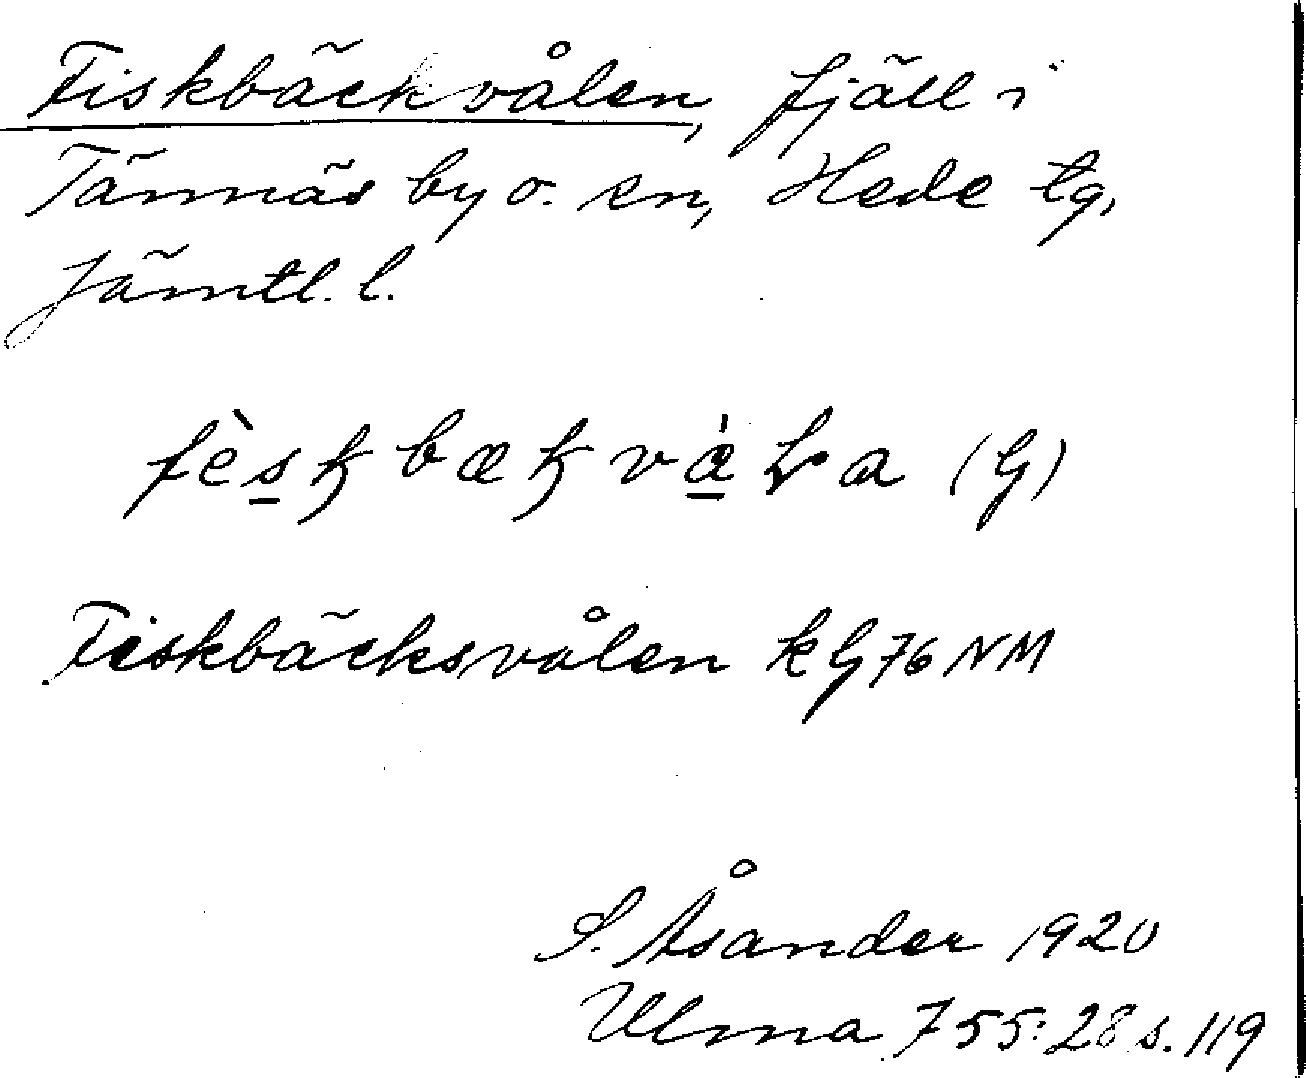 Fiskbäckvålen, fjäll i
Tännäs by o. sn, Hede tg,
Jämtl. l.
(G)
Fiskbäcksvålen kG76NM
S. Åsander 1920
Ulma 755:28 s. 119